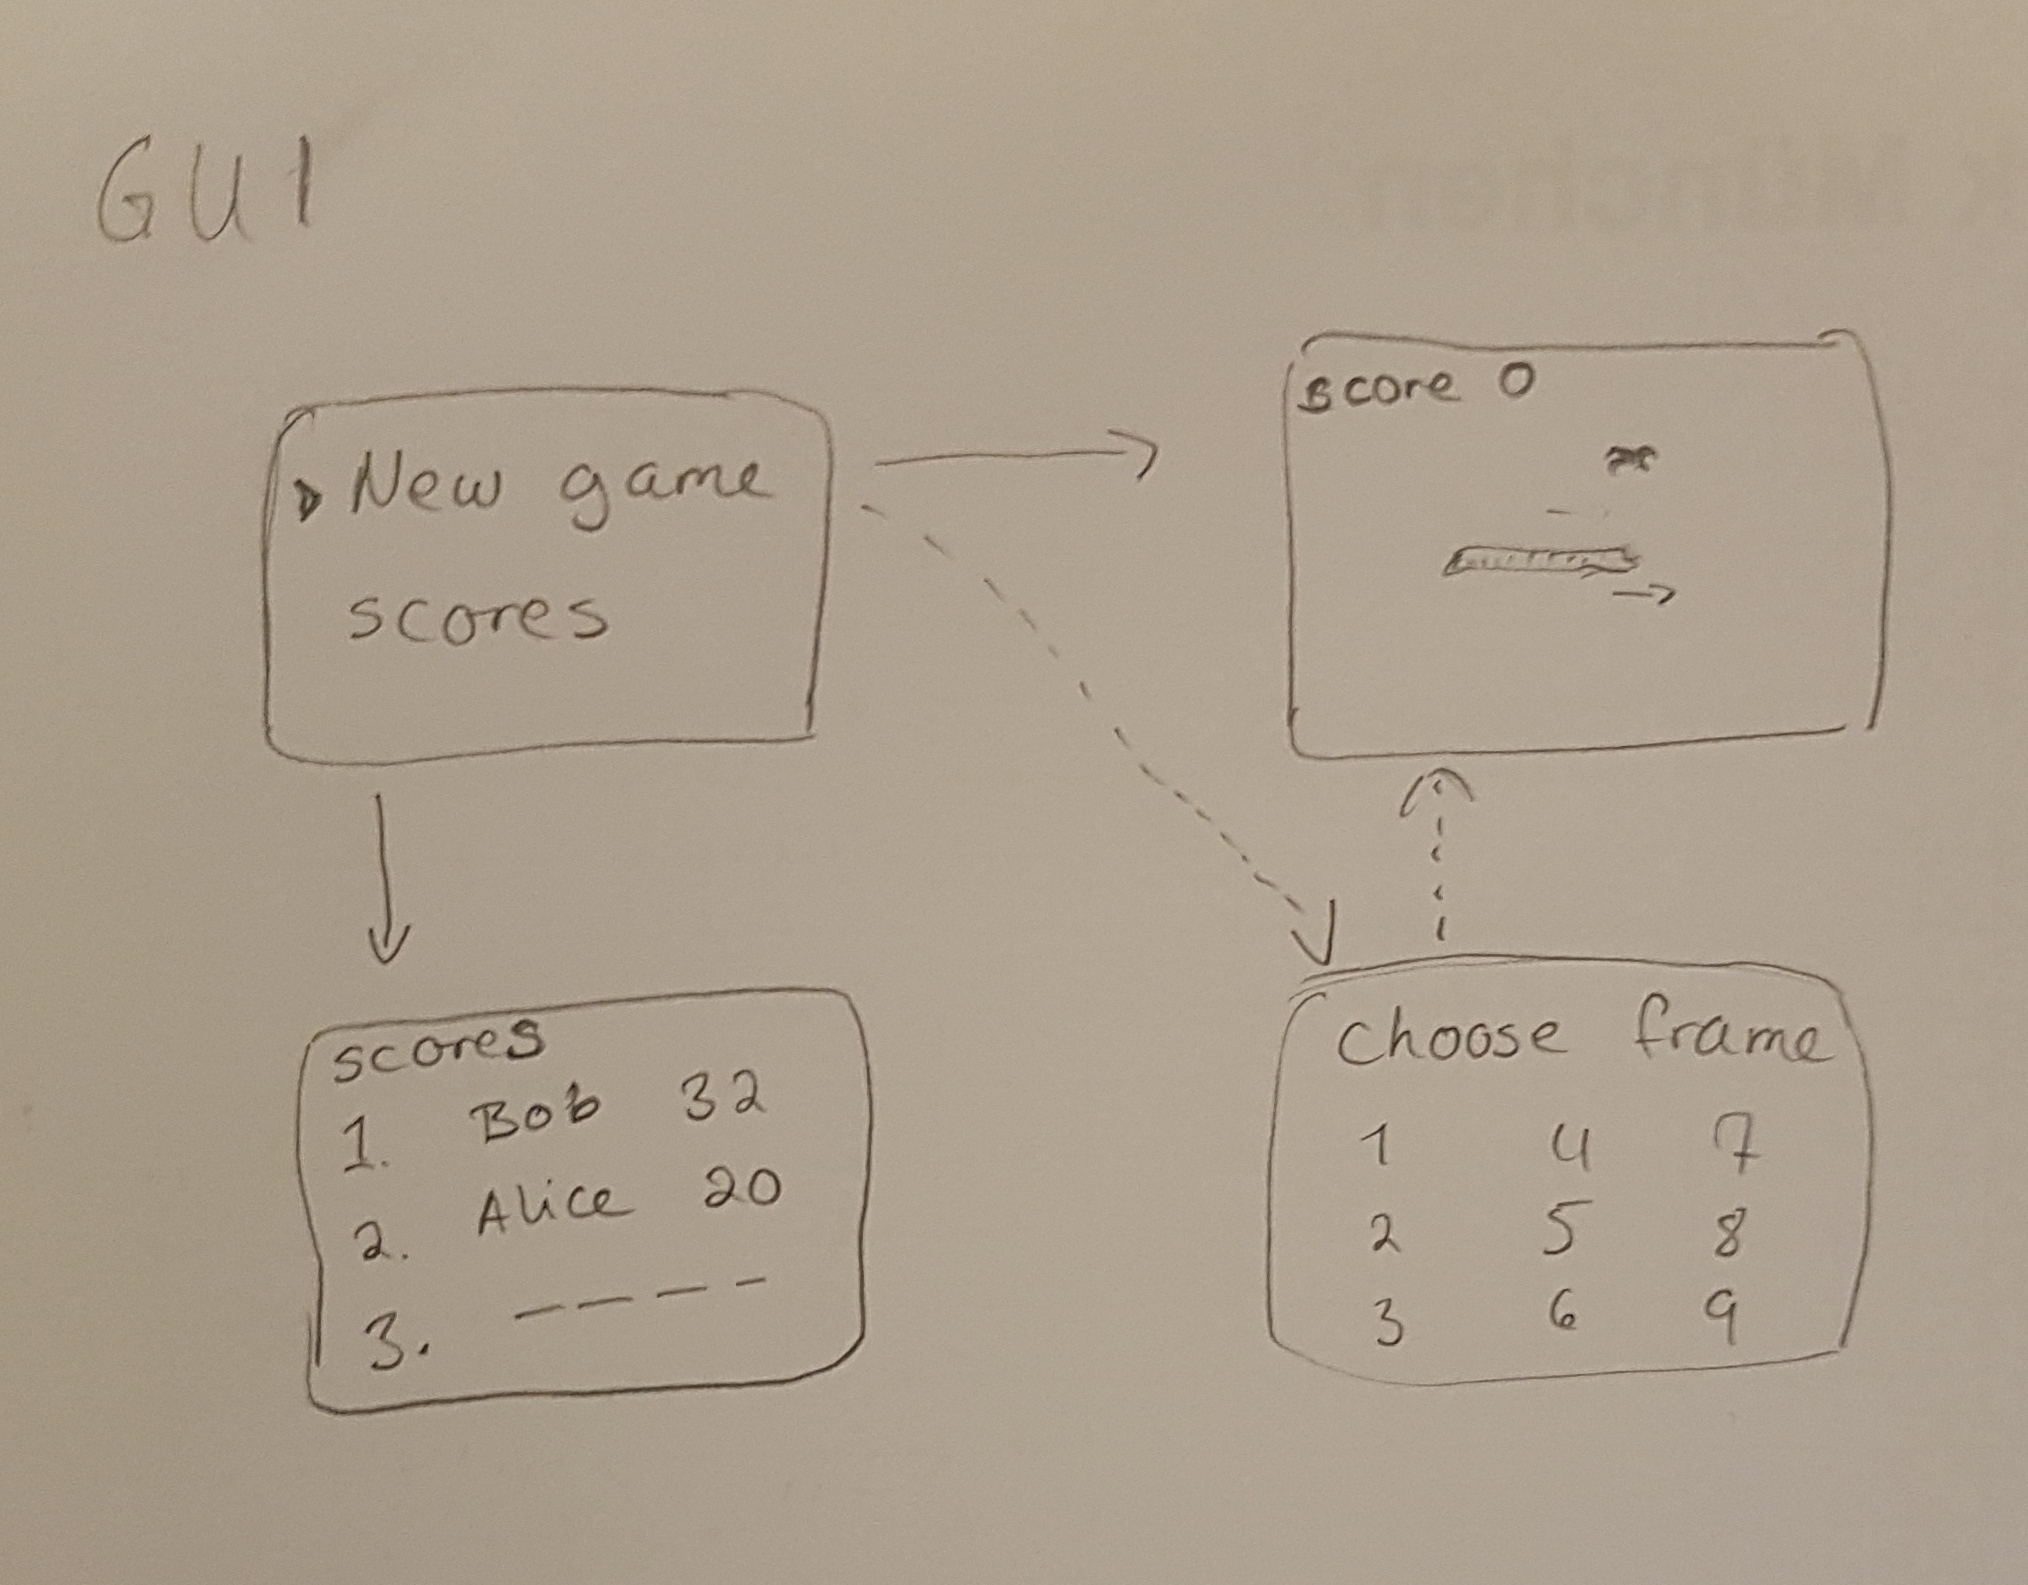 GUI
New game
scores
score 0
scores
1. Bob 32
2. Alice 20
3. ----
choose frame
1 4 7
2 5 8
3 6 9